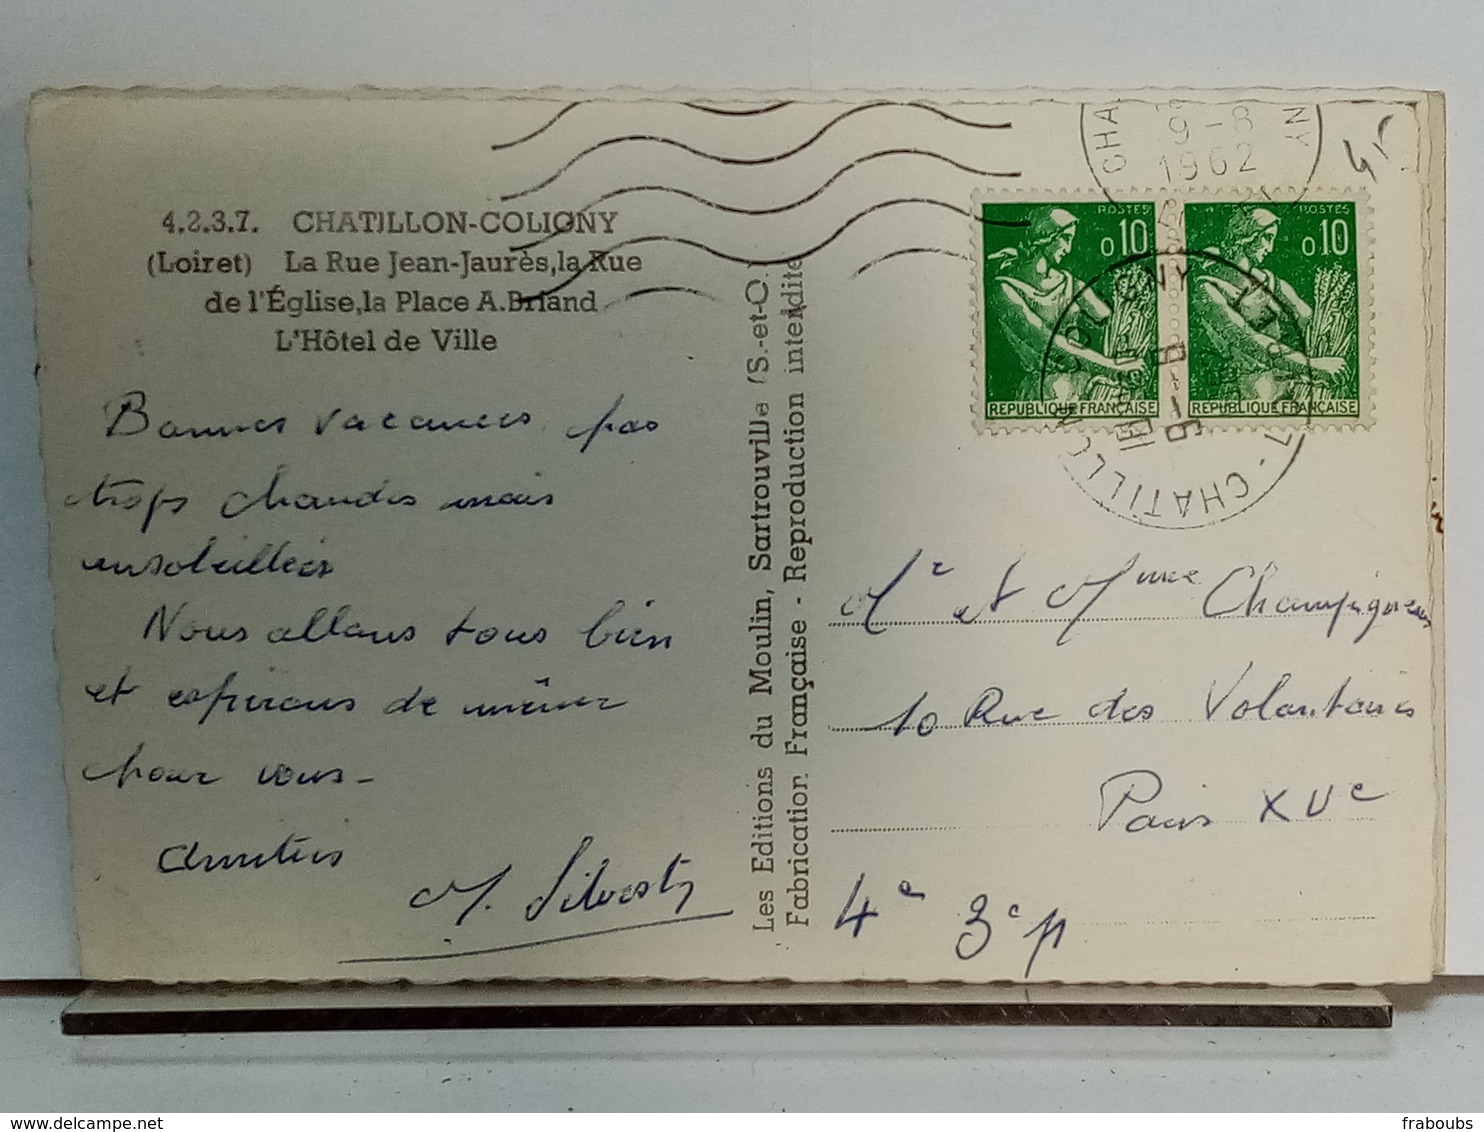 4.2.3.7. CHATILLON-COLIGNY
(Loiret) La Rue Jean-Jaurès, la Rue
de l'Église, la Place A. Briand
L'Hôtel de Ville
Bonnes vacances, pas
trops chaudes mais
ensoleillées
Nous allons tous bien
et espérons de même
pour vous -
Amitiés
M. Silvestre
Les Editions du Moulin, Sartrouville (S.-et-O.)
Fabrication Française - Reproduction interdite
CHA NY
9-8
1962
POSTES
0,10
REPUBLIQUE FRANÇAISE
POSTES
0,10
REPUBLIQUE FRANÇAISE
CHATILLON COLIGNY
Mr et Mme Champigneux
10 Rue des Volontaires
Paris XVe
4e 3e p
www.delcampe.net
fraboubs